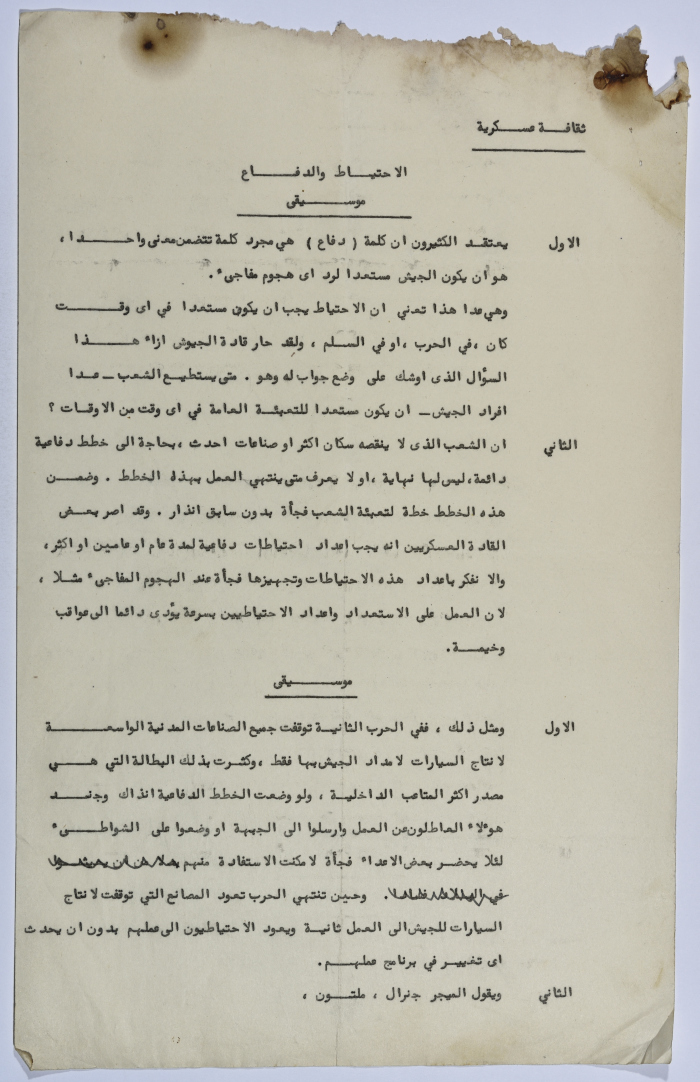 ثقافة عسكرية
الاحتياط والدفاع
موسيقى
الاول يعتقد الكثيرون ان كلمة ( دفاع ) هي مجرد كلمة تتضمن معنى واحدا ،
هو ان يكون الجيش مستعدا لرد اى هجوم مفاجىء .
وهي عدا هذا تعني ان الاحتياط يجب ان يكون مستعدا في اى وقت
كان ، في الحرب ، او في السلم ، ولقد حار قادة الجيوش ازاء هذا
السؤال الذى اوشك على وضع جواب له وهو . متى يستطيع الشعب ـ عدا
افراد الجيش ـ ان يكون مستعدا للتعبئة العامة في اى وقت من الاوقات ؟
الثاني ان الشعب الذى لا ينقصه سكان اكثر او صناعات احدث ، بحاجة الى خطط دفاعية
دائمة ، ليس لها نهاية ، او لا يعرف متى ينتهي العمل بهذه الخطط . وضمن
هذه الخطط خطة لتعبئة الشعب فجأة بدون سابق انذار . وقد اصر بعض
القادة العسكريين انه يجب اعداد احتياطات دفاعية لمدة عام او عامين او اكثر ،
والا نفكر باعداد هذه الاحتياطات وتجهيزها فجأة عند الهجوم المفاجىء مثلا ،
لان العمل على الاستعداد واعداد الاحتياطيين بسرعة يؤدى دائما الى عواقب
وخيمة .
موسيقى
الاول ومثل ذلك ، ففي الحرب الثانية توقفت جميع الصناعات المدنية الواسعة
لانتاج السيارات لامداد الجيش بها فقط ، وكثرت بذلك البطالة التي هي
مصدر اكثر المتاعب الداخلية ، ولو وضعت الخطط الدفاعية انذاك وجند
هوءلاء العاطلون عن العمل وارسلوا الى الجبهة او وضعوا على الشواطىء
لئلا يحضر بعض الاعداء فجأة لامكنت الاستفادة منهم
وحين تنتهي الحرب تعود المصانع التي توقفت لانتاج
السيارات للجيش الى العمل ثانية ويعود الاحتياطيون الى عملهم بدون ان يحدث
اى تغيير في برنامج عملهم .
الثاني ويقول الميجر جنرال ، ملتون ،